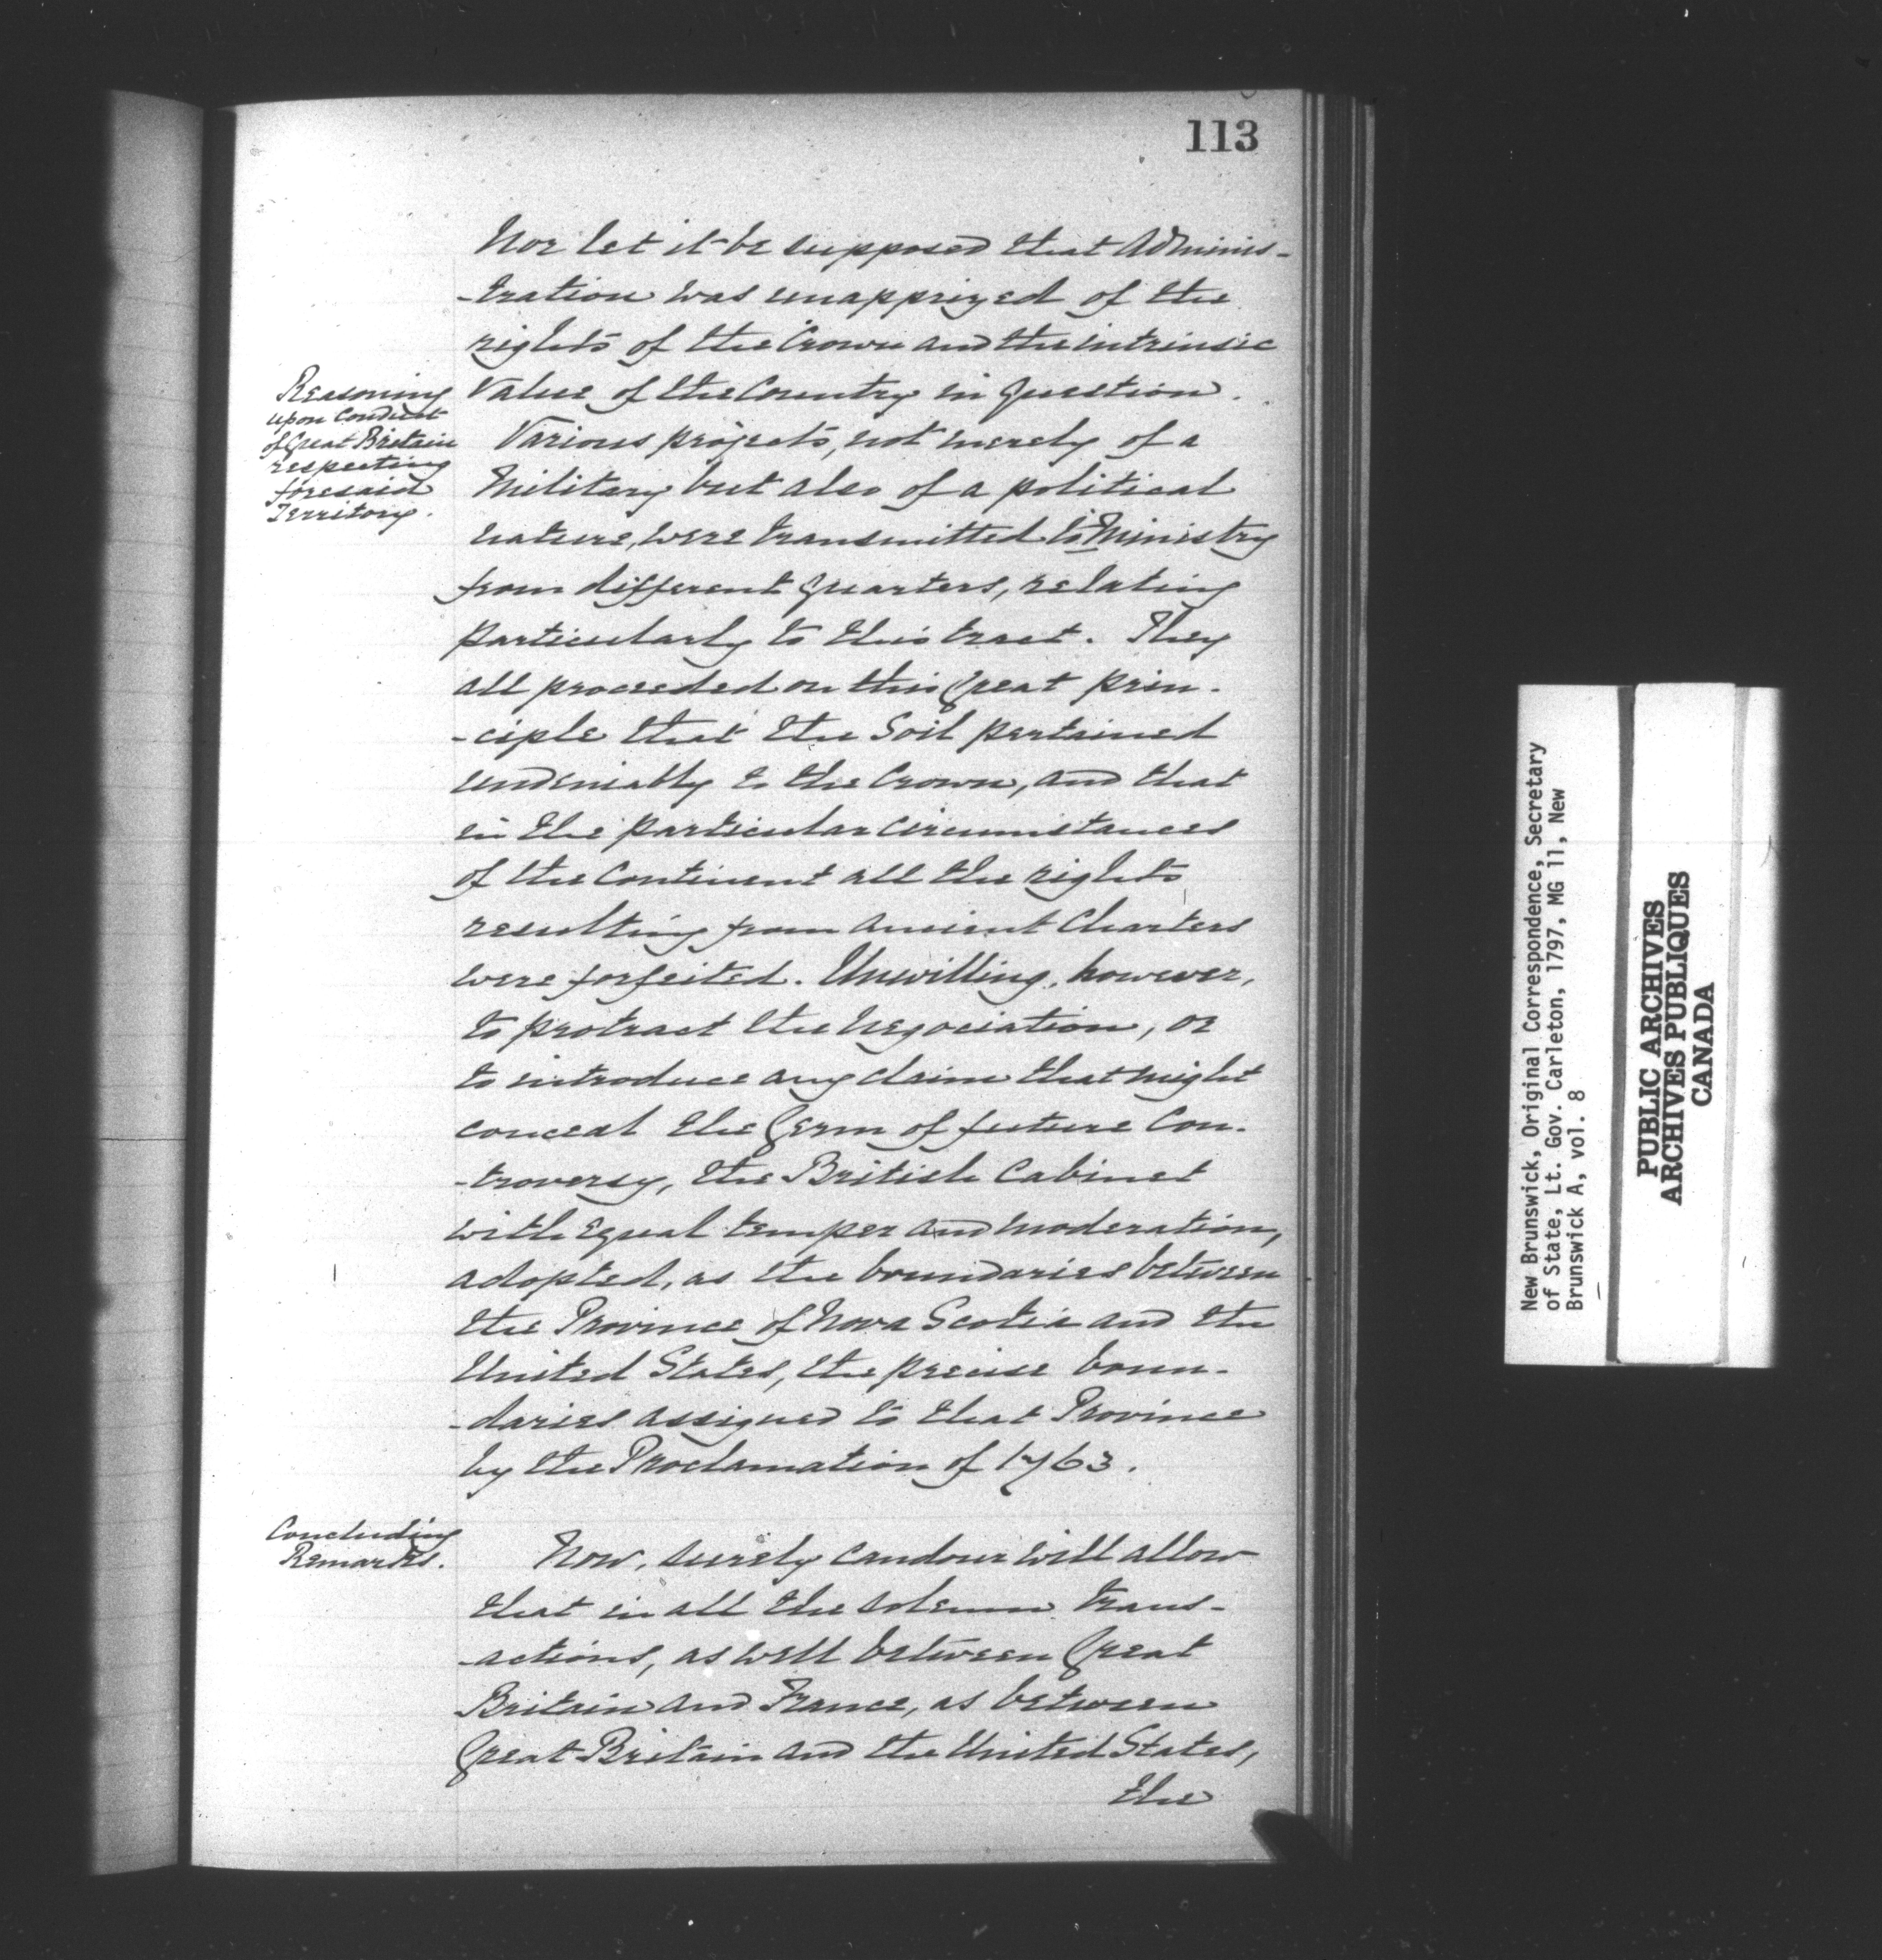 113
Nor let it be supposed that Adminis-
-tration was unapprized of the
rights of the Crown and the intrinsic
Value of the Country in Question.
Reasoning
upon Conduct
of Great Britain
respecting
foresaid
Territory.
Various projects, not merely of a
Military but also of a political
nature, were transmitted to Ministry
from different Quarters, relating
particularly to this tract. They
all proceeded on this Great prin-
-ciple that the Soil pertained
undeniably to the Crown, and that
in the particular circumstances
of the Continent all the rights
resulting from Ancient Charters
were forfeited. Unwilling, however,
to protract the Negociation, or
to introduce any claim that might
conceal the Germ of future Con-
-troversy, the British Cabinet
with equal temper and moderation,
adopted, as the boundaries between
the Province of Nova Scotia and the
United States, the precise boun-
-daries assigned to that Province
by the Proclamation of 1763.
Concluding
Remarks.
Now, surely candour will allow
that in all the solemn trans-
-actions, as well between Great
Britain and France, as between
Great Britain and the United States,
the
New Brunswick, Original Correspondence, Secretary
of State, Lt. Gov. Carleton, 1797, MG 11, New
Brunswick A, vol. 8
PUBLIC ARCHIVES
ARCHIVES PUBLIQUES
CANADA